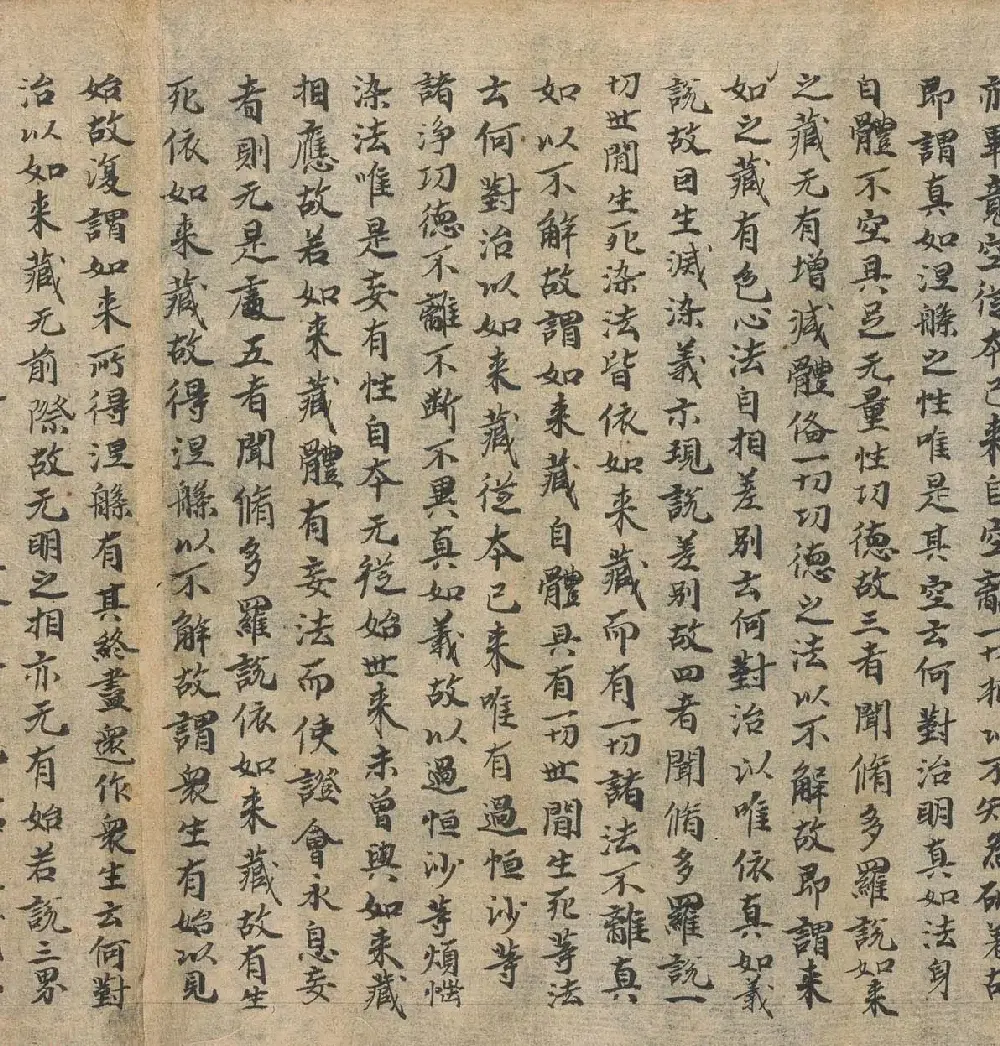 竟空從本已来自空離一切相以不知為破著故
即謂真如涅槃之性唯是其空云何對治明真如法身
自體不空具足无量性功德故三者聞脩多羅說如来
之藏无有增減體俻一切功德之法以不解故即謂来
如之藏有色心法自相差别云何對治以唯依真如義
說故因生滅染義示現說差别故四者聞脩多羅說一
切世間生死染法皆依如来藏而有一切諸法不離真
如以不解故謂如来藏自體具有一切世間生死等法
云何對治以如来藏從本已来唯有過恒沙等
諸淨功德不離不断不異真如義故以過恒沙等煩惱
染法唯是妄有性自本无從始世来未曾與如来藏
相應故若如来藏體有妄法而使證會永息妄
者則无是處五者聞脩多羅說依如来藏故有生
死依如来藏故得涅槃以不解故謂衆生有始以見
始故復謂如来所得涅槃有其終盡還作衆生云何對
治以如来藏无前際故无明之相亦无有始若說三界